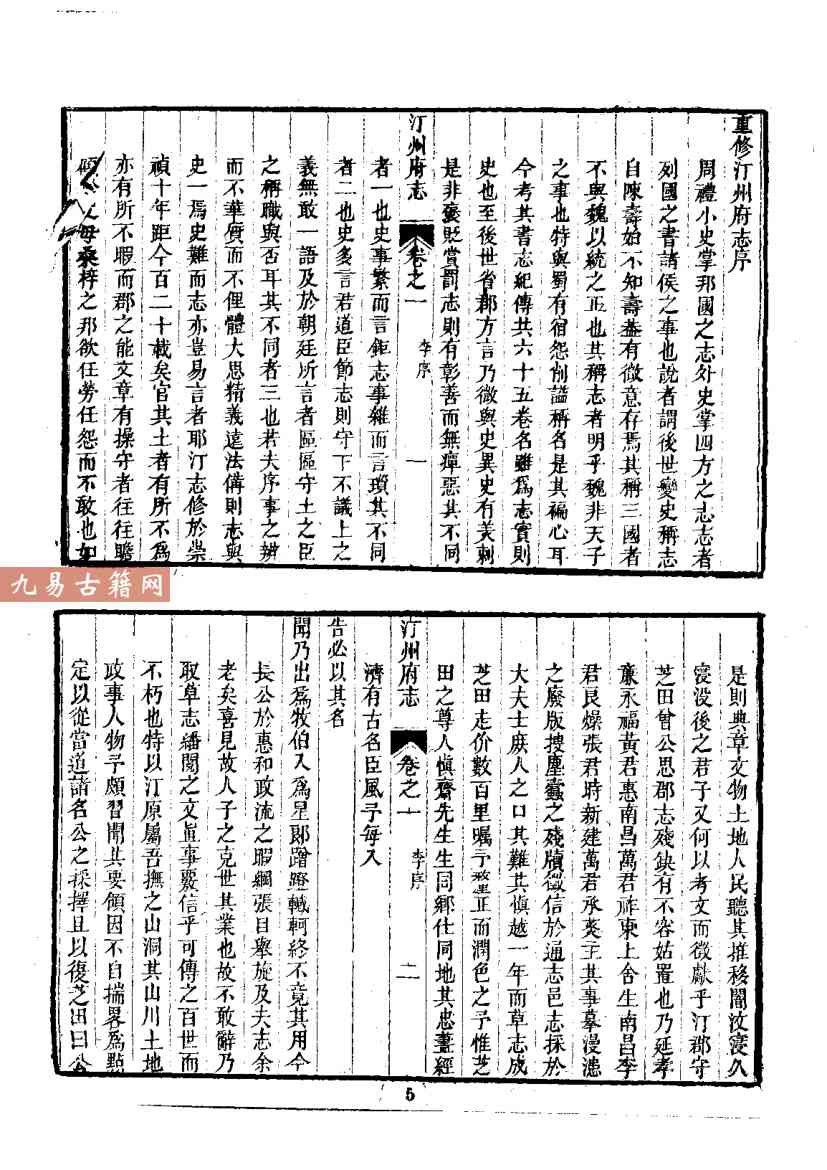 重修汀州府志序
周禮小史掌邦國之志外史掌四方之志志者
列國之書諸侯之事也說者謂後世變史稱志
自陳壽始不知壽葢有微意存焉其稱三國者
不與魏以統之正也其稱志者明乎魏非天子
之事也特與蜀有宿怨削謚稱名是其褊心耳
今考其書志紀傳共六十五卷名雖爲志實則
史也至後世省郡方言乃微與史異史有美刺
是非褒貶賞罰志則有彰善而無癉惡其不同
汀州府志 卷之一 李序 一
者一也史事繁而言鉅志事雜而言瑣其不同
者二也史多言君道臣節志則守下不議上之
義無敢一語及於朝廷所言者區區守土之臣
之稱職與否耳其不同者三也若夫序事之辨
而不華質而不俚體大思精義遠法備則志與
史一焉史難而志亦豈易言者耶汀志修於崇
禎十年距今百二十載矣官其土者有所不爲
亦有所不暇而郡之能文章有操守者往往瞻
顧父母桑梓之邦欲任勞任怨而不敢也如
是則典章文物土地人民聽其推移闇汶寖久
寖没後之君子又何以考文而徵獻乎汀郡守
芝田曾公思郡志殘缺有不容姑置也乃延孝
亷永福黃君惠南昌萬君祚東上舍生南昌李
君艮燥張君時新建萬君承英主其事摹漫漶
之廢版搜塵蠹之殘牘徵信於通志邑志採於
大夫士庶人之口其難其慎越一年而草志成
芝田走价数百里囑予釐正而潤色之予惟芝
田之尊人慎齋先生生同鄉仕同地其忠藎經
汀州府志 卷之一 李序 二
濟有古名臣風予每入
告必以其名
聞乃出爲牧伯入爲星郎蹭蹬轗軻終不竟其用今
長公於惠和政流之暇綱張目舉旋及夫志余
老矣喜見故人子之克世其業也故不敢辭乃
取草志繙閱之文眞事覈信乎可傳之百世而
不朽也特以汀原屬吾撫之山洞其山川土地
政事人物予頗習聞其要領因不自揣畧爲點
定以從當道諸名公之採擇且以復芝田曰公
5
九易古籍网